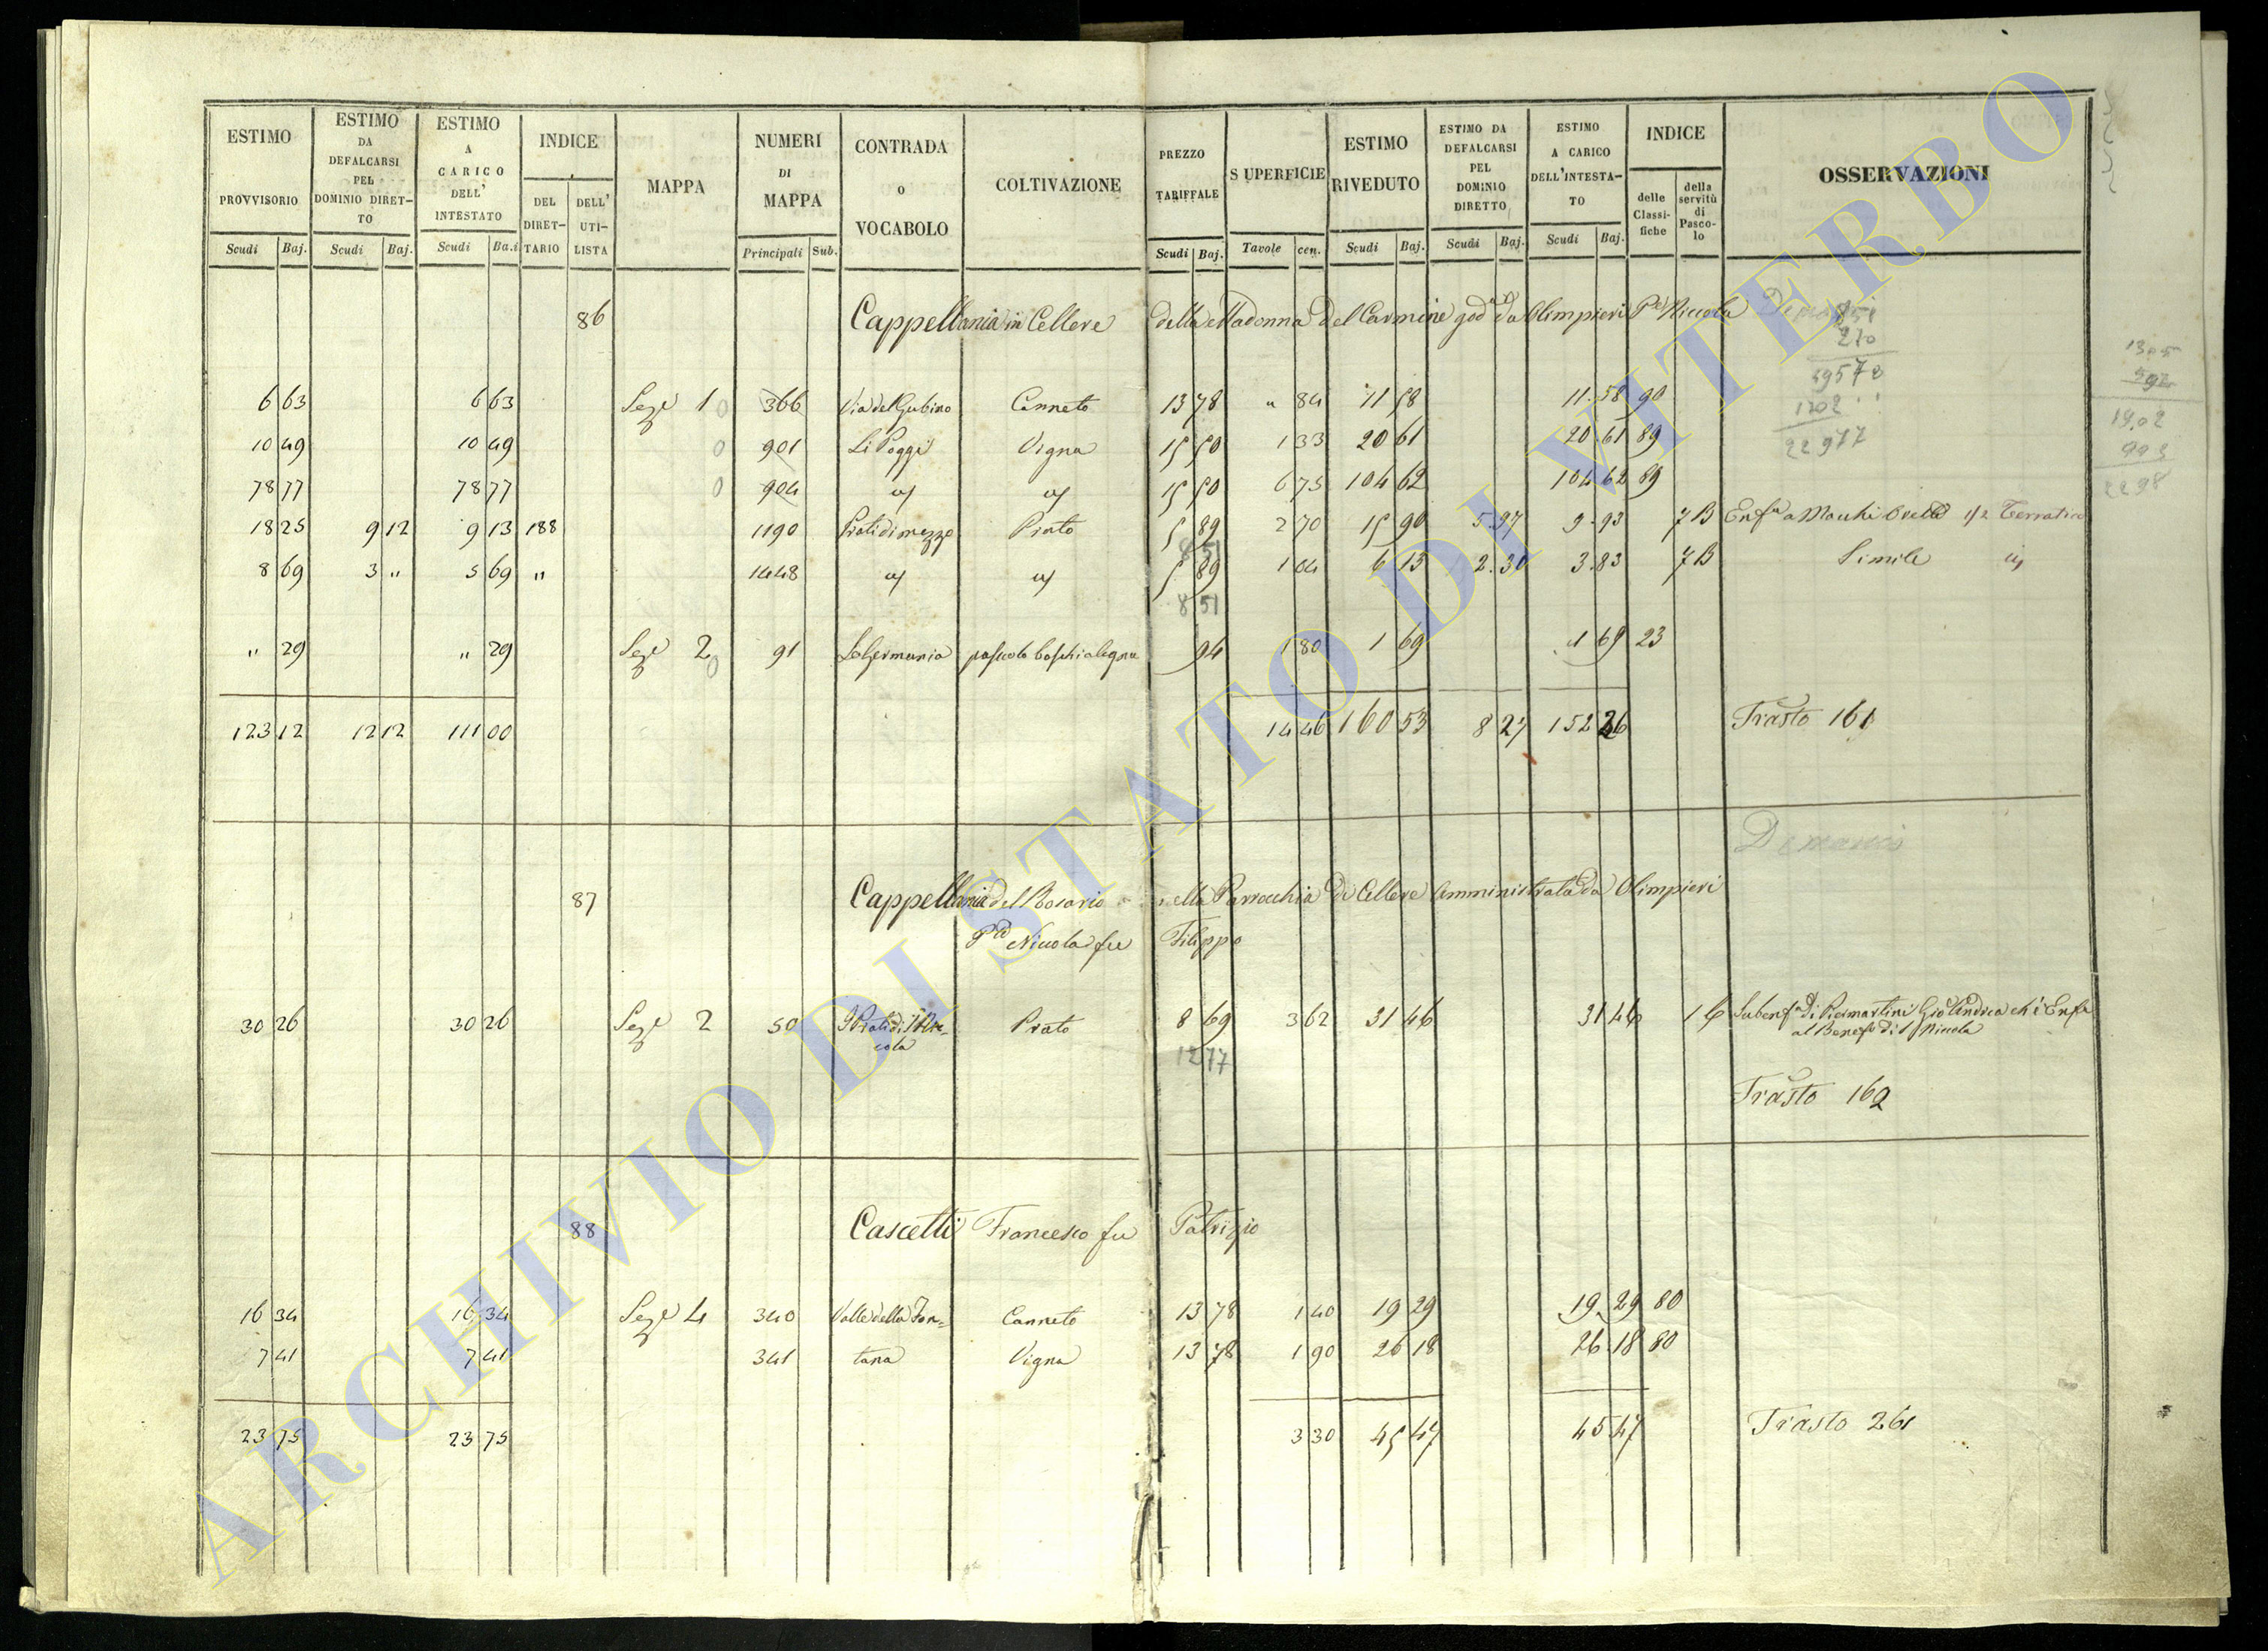 ESTIMO PROVVISORIO | ESTIMO DA DEFALCARSI PEL DOMINIO DIRET-TO | ESTIMO A CARICO DELL' INTESTATO | INDICE | MAPPA | NUMERI DI MAPPA | CONTRADA O VOCABOLO | COLTIVAZIONE | PREZZO TARIFFALE | SUPERFICIE | ESTIMO RIVEDUTO | ESTIMO DA DEFALCARSI PEL DOMINIO DIRETTO | ESTIMO A CARICO DELL'INTESTA-TO | INDICE | OSSERVAZIONI
DEL DIRET-TARIO | DELL' UTI-LISTA | delle Classi-fiche | della servitù di Pasco-lo
Scudi | Baj. | Scudi | Baj. | Scudi | Ba.i | Principali | Sub. | Scudi | Baj. | Tavole | cen. | Scudi | Baj. | Scudi | Baj. | Scudi | Baj.
86 Cappellania in Cellere della Madonna del Carmine god da Olimpieri Niccola
6 63 | 6 63 | Seze 1 | 366 | Via del Gubino | Canneto | 13 78 | " 84 | 11 58 | 11.58 | 90
10 49 | 10 49 | 901 | Li Poggi | Vigna | 15 50 | 1 33 | 20 61 | 20.61 | 89
78 77 | 78 77 | 904 | 15 50 | 6 75 | 104 62 | 104 62 | 89
18 25 | 9 12 | 9 13 | 188 | 1190 | Prati di mezzo | Prato | 5 89 | 2 70 | 15 90 | 5.97 | 9.93 | 7 B
8 51
8 69 | 3 " | 5 69 | " | 1448 | 5 89 | 1 04 | 6 13 | 2.30 | 3.83 | 7 B | Simile
8 51
" 29 | " 29 | Seze 2 | 91 | La Germania | 94 | 1 80 | 1 69 | 1 69 | 23
123 12 | 12 12 | 111 00 | 14 46 | 160 53 | 8 27 | 152 26 | Trasto 161
270
22977
1902
993
2298
87 Cappellania del Rosario nella Parrocchia di Cellere Amministrata da Olimpieri
Nicola fu Filippo
30 26 | 30 26 | Seze 2 | 50 | Prato | 8 69 | 3 62 | 31 46 | 31 46 | Giò Andrea ch'è Enfa
12 77
al Benef di S Niccola
Trasto 162
88 Cascetti Francesco fu Patrizio
16 34 | 16 34 | Seze 4 | 340 | Valle della Fon= | Canneto | 13 78 | 1 40 | 19 29 | 19.29 | 80
7 41 | 7 41 | 341 | tana | Vigna | 13 78 | 1 90 | 26 18 | 26.18 | 80
23 75 | 23 75 | 3 30 | 45 47 | 45 47 | Trasto 261
ARCHIVIO DI STATO DI VITERBO